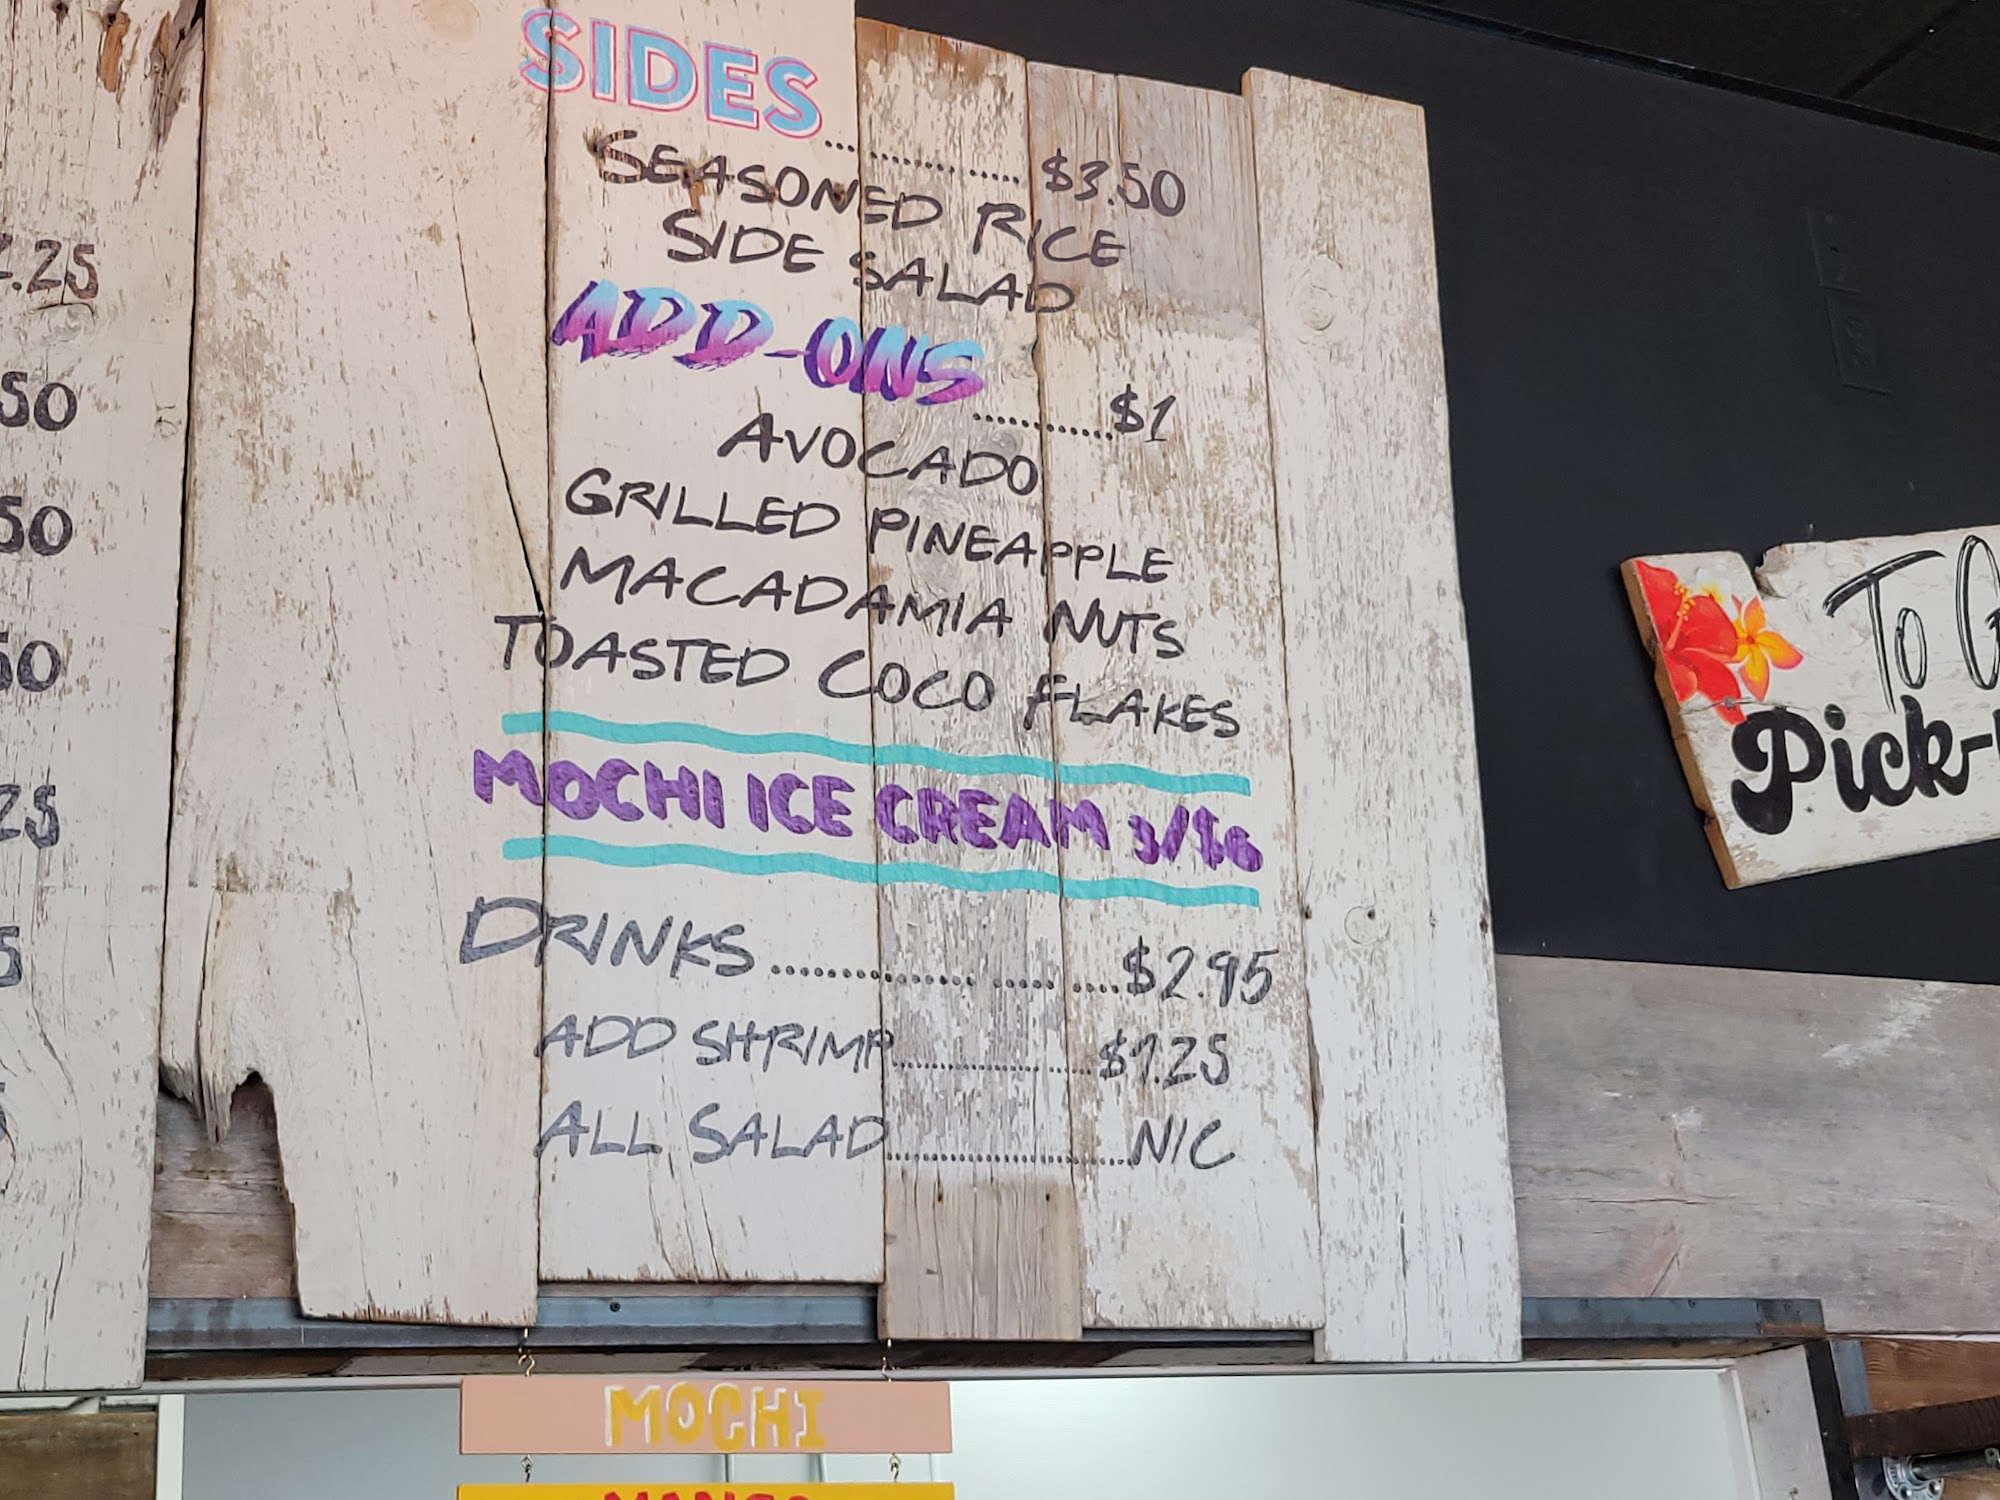 SIDES ............ $3.50
SEASONED RICE
SIDE SALAD
ADD-ONS .......... $1
AVOCADO
GRILLED PINEAPPLE
MACADAMIA NUTS
TOASTED COCO FLAKES
MOCHI ICE CREAM 3/$6
DRINKS .................... $2.95
ADD SHRIMP .................... $1.25
ALL SALAD .................... N/C
.25
50
50
50
25
5
To G
Pick-
MOCHI
MANGO